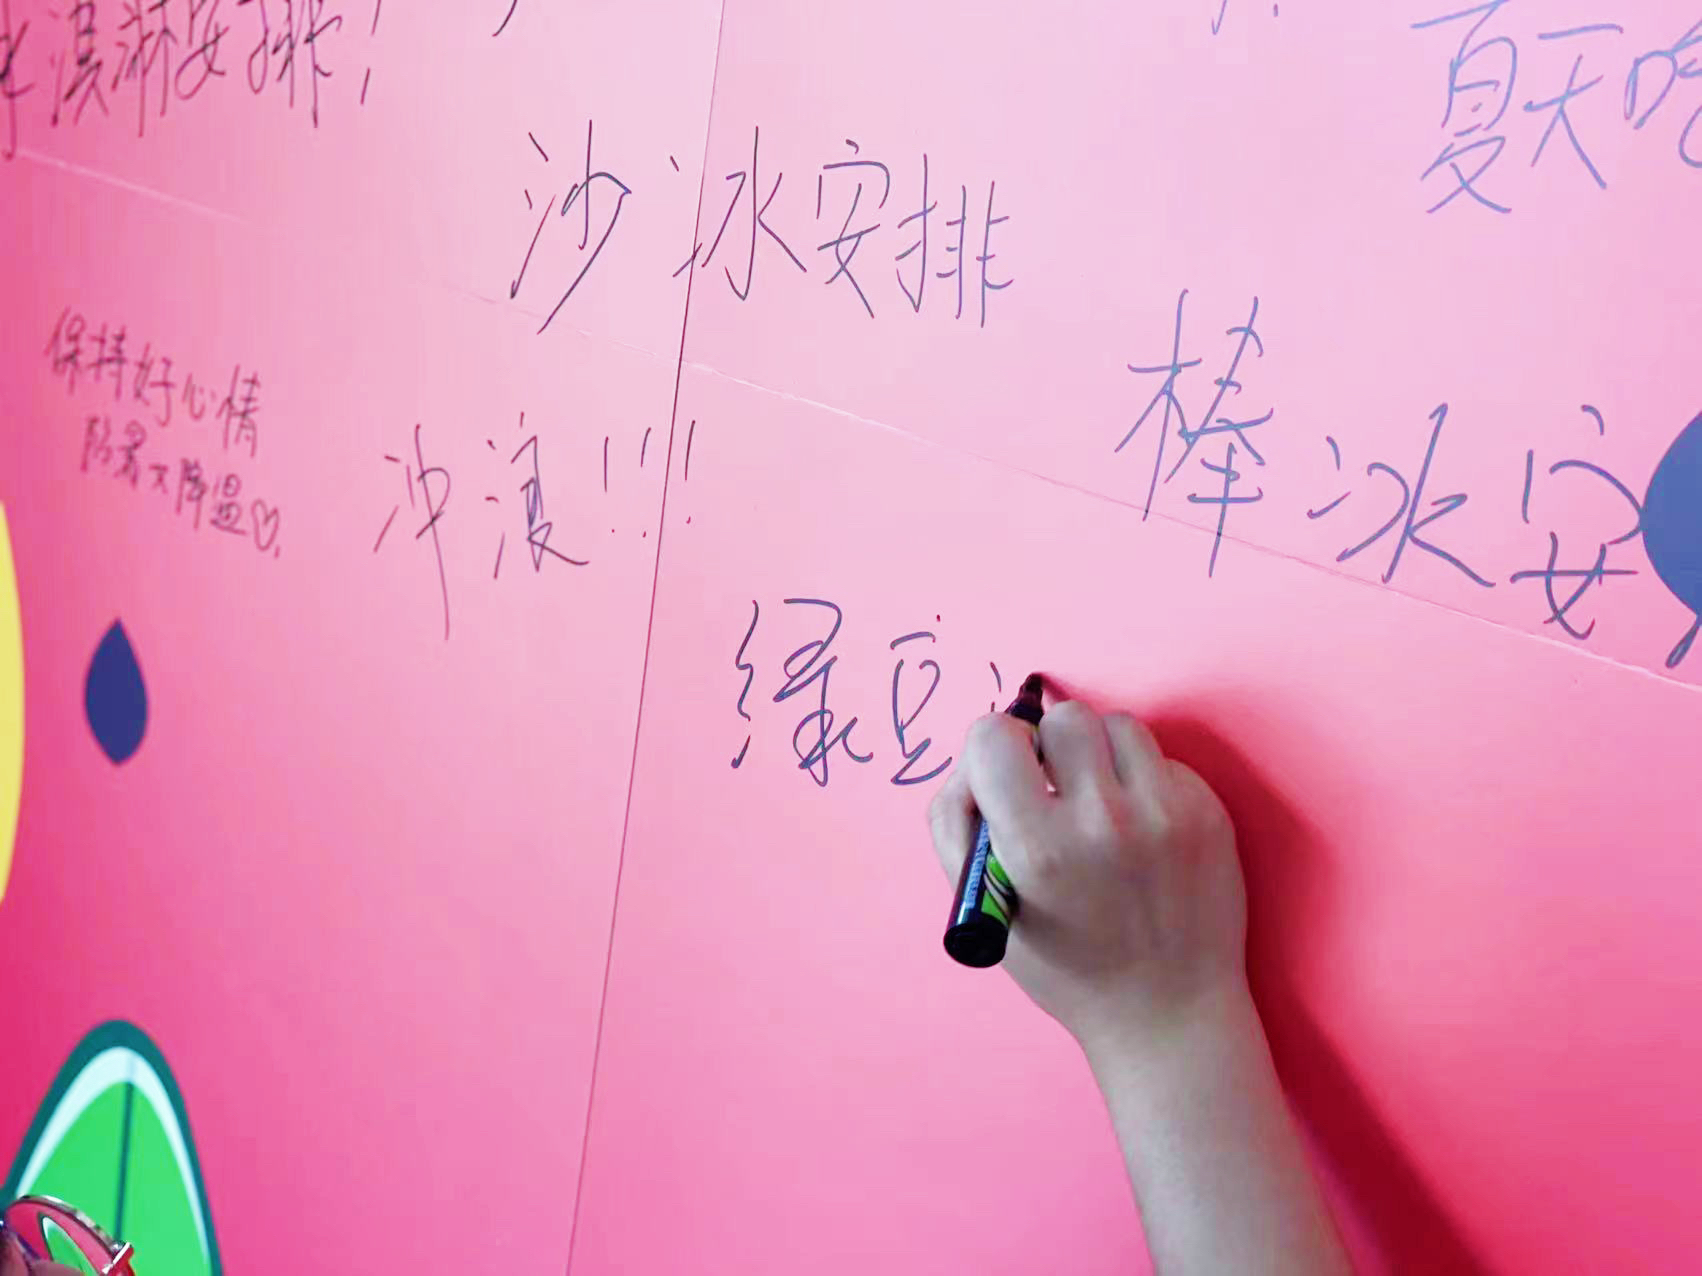 冰淇淋安排!
夏天吃
沙冰安排
棒冰安
保持好心情
防暑又降温♡
冲浪!!!
绿豆